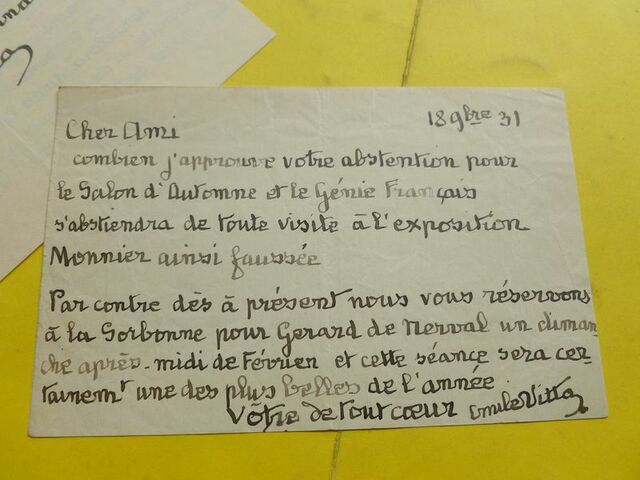 18 9bre 31
Cher Ami
combien j'approuve votre abstention pour
le Salon d'Automne et le Génie Français
s'abstiendra de toute visite à l'exposition
Monnier ainsi faussée
Par contre dès à présent nous vous réservons
à la Sorbonne pour Gerard de Nerval un diman
che après-midi de Février et cette séance sera cer-
tainemt une des plus belles de l'année.
Vôtre de tout cœur Emile Vitta